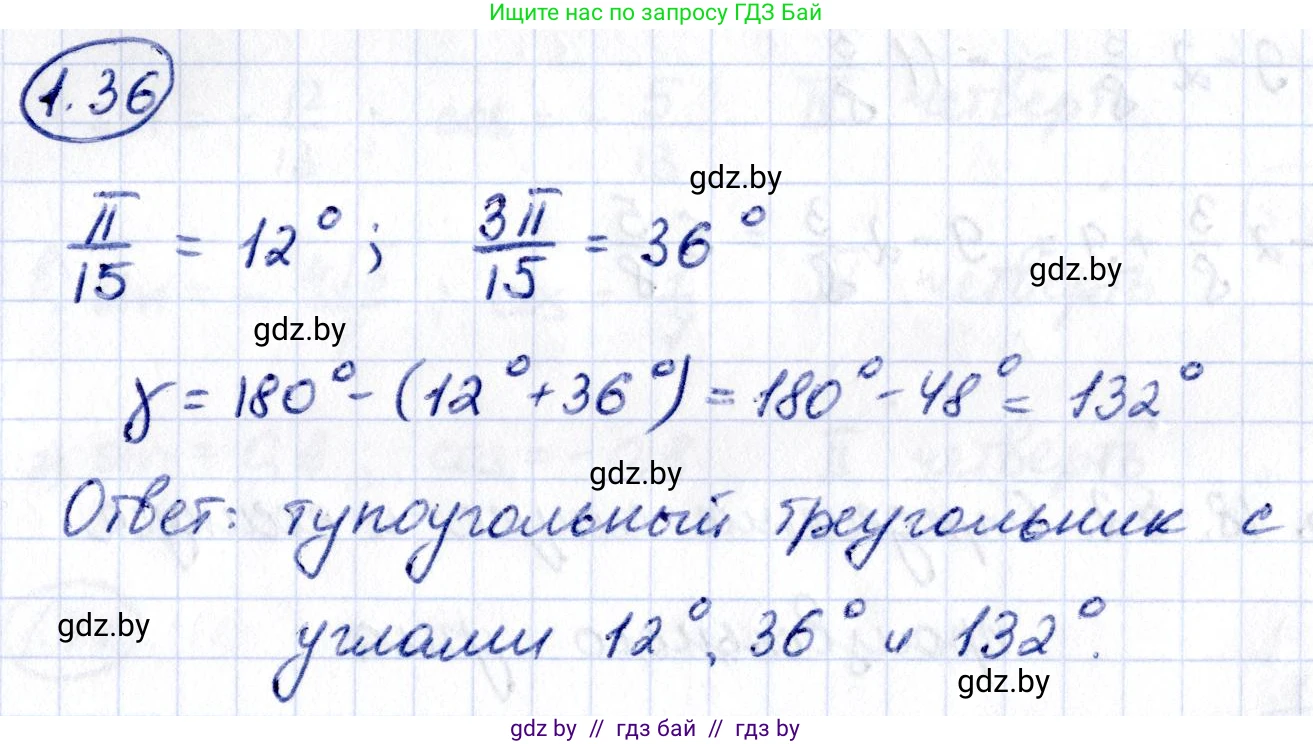 Ищите нас по запросу ГДЗ Бай
1.36
π/15 = 12°; 3π/15 = 36°
gdz.by
gdz.by
gdz.by
γ = 180° - (12° + 36°) = 180° - 48° = 132°
gdz.by
Ответ: тупоугольный треугольник с
углами 12°, 36° и 132°.
gdz.by
gdz.by
gdz.by // гдз бай // gdz by